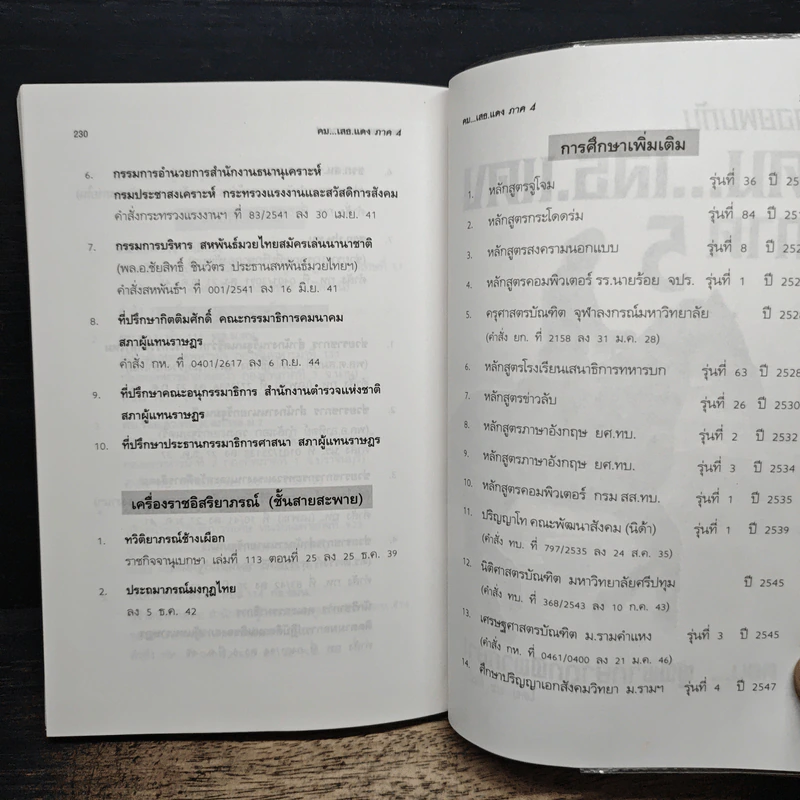 230
คม...เสธ.แดง ภาค 4
6. กรรมการอำนวยการสำนักงานธนานุเคราะห์
กรมประชาสงเคราะห์ กระทรวงแรงงานและสวัสดิการสังคม
คำสั่งกระทรวงแรงงานฯ ที่ 83/2541 ลง 30 เม.ย. 41
7. กรรมการบริหาร สหพันธ์มวยไทยสมัครเล่นนานาชาติ
(พล.อ.ชัยสิทธิ์ ชินวัตร ประธานสหพันธ์มวยไทยฯ)
คำสั่งสหพันธ์ฯ ที่ 001/2541 ลง 16 มิ.ย. 41
8. ที่ปรึกษากิตติมศักดิ์ คณะกรรมาธิการคมนาคม
สภาผู้แทนราษฎร
คำสั่ง กห. ที่ 0401/2617 ลง 6 ก.ย. 44
9. ที่ปรึกษาคณะอนุกรรมาธิการ สำนักงานตำรวจแห่งชาติ
สภาผู้แทนราษฎร
10. ที่ปรึกษาประธานกรรมาธิการศาสนา สภาผู้แทนราษฎร
เครื่องราชอิสริยาภรณ์ (ชั้นสายสะพาย)
1. ทวิติยาภรณ์ช้างเผือก
ราชกิจจานุเบกษา เล่มที่ 113 ตอนที่ 25 ลง 25 ธ.ค. 39
2. ประถมาภรณ์มงกุฎไทย
ลง 5 ธ.ค. 42
คม...เสธ.แดง ภาค 4
การศึกษาเพิ่มเติม
1. หลักสูตรจู่โจม รุ่นที่ 36 ปี
2. หลักสูตรกระโดดร่ม รุ่นที่ 84 ปี
3. หลักสูตรสงครามนอกแบบ รุ่นที่ 8 ปี
4. หลักสูตรคอมพิวเตอร์ รร.นายร้อย จปร. รุ่นที่ 1 ปี
5. ครุศาสตรบัณฑิต จุฬาลงกรณ์มหาวิทยาลัย ปี 2528
(คำสั่ง ยก. ที่ 2158 ลง 31 ม.ค. 28)
6. หลักสูตรโรงเรียนเสนาธิการทหารบก รุ่นที่ 63 ปี 2528
7. หลักสูตรข่าวลับ รุ่นที่ 26 ปี 2530
8. หลักสูตรภาษาอังกฤษ ยศ.ทบ. รุ่นที่ 2 ปี 2532
9. หลักสูตรภาษาอังกฤษ ยศ.ทบ. รุ่นที่ 3 ปี 2534
10. หลักสูตรคอมพิวเตอร์ กรม สส.ทบ. รุ่นที่ 1 ปี 2535
11. ปริญญาโท คณะพัฒนาสังคม (นิด้า) รุ่นที่ 1 ปี 2539
(คำสั่ง ทบ. ที่ 797/2535 ลง 24 ส.ค. 35)
12. นิติศาสตรบัณฑิต มหาวิทยาลัยศรีปทุม ปี 2545
(คำสั่ง ทบ. ที่ 368/2543 ลง 10 ก.ค. 43)
13. เศรษฐศาสตรบัณฑิต ม.รามคำแหง รุ่นที่ 3 ปี 2545
(คำสั่ง กห. ที่ 0461/0400 ลง 21 ม.ค. 46)
14. ศึกษาปริญญาเอกสังคมวิทยา ม.รามฯ รุ่นที่ 4 ปี 2547